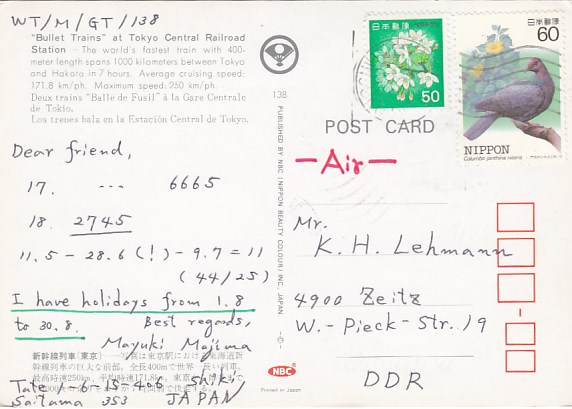 WT/M/GT/138
"Bullet Trains" at Tokyo Central Railroad
Station – The world's fastest train with 400-
meter length spans 1000 kilometers between Tokyo
and Hakata in 7 hours. Average cruising speed:
171.8 km/ph. Maximum speed: 250 km/ph.
Deux trains "Balle de Fusil" à la Gare Centrale
de Tokio.
Los trenes bala en la Estación Central de Tokyo.
Dear friend,
17. --- 6665
18. 2745
11.5 - 28.6 (!) - 9.7 = 11
(44/25)
I have holidays from 1.8
to 30.8. Best regards,
Mayuki Majima
新幹線列車(東京)
最高時速250km、平均時速171.8km、東京
Tate 1-6-15-406 Shiki
Saitama 353 JAPAN
138
PUBLISHED BY NBC (NIPPON BEAUTY COLOUR) INC. JAPAN
NBC
Printed in Japan
日本郵便
50
日本郵便
60
NIPPON
Columba janthina nitens
POST CARD
-Air-
Mr.
K. H. Lehmann
4900 Zeitz
W.-Pieck-Str. 19
DDR